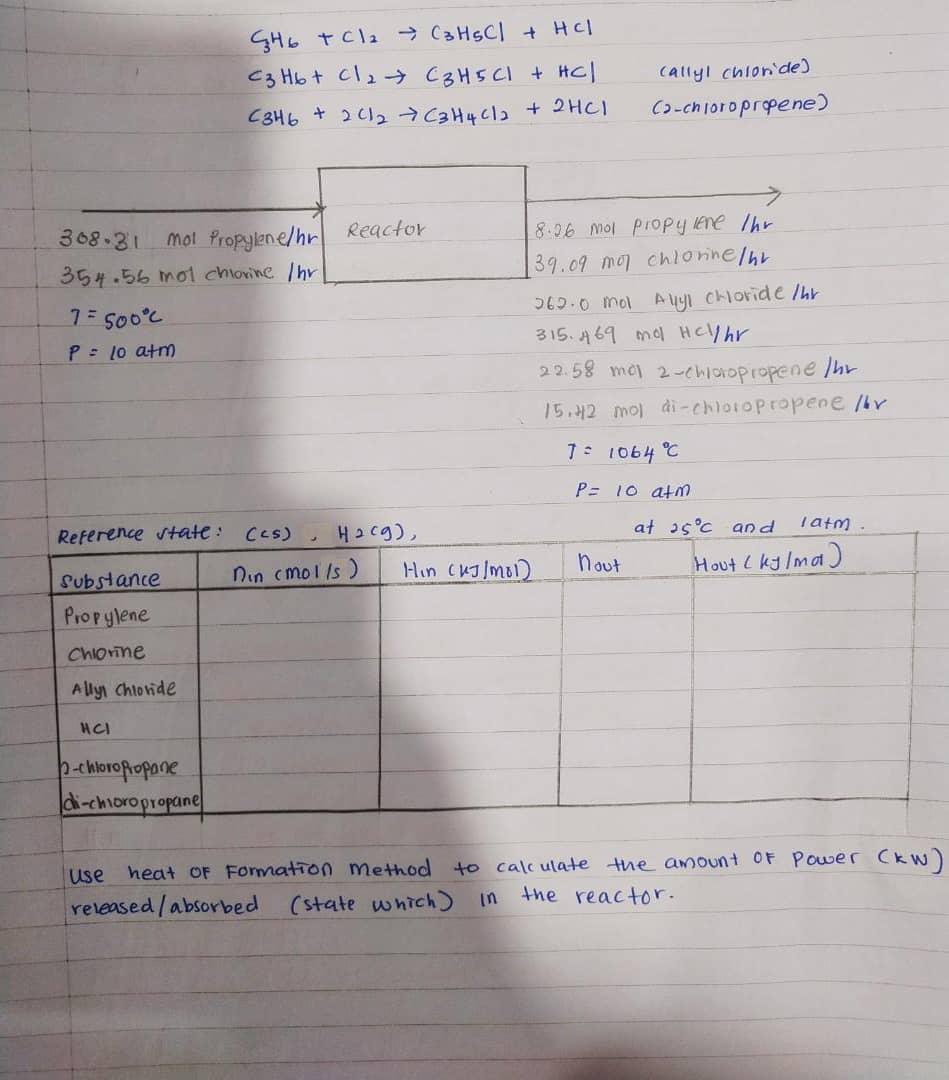 C3H6 + Cl2 → C3H5Cl + HCl
C3H6 + Cl2 → C3H5Cl + HCl (allyl chloride)
C3H6 + 2Cl2 → C3H4Cl2 + 2HCl (2-chloropropene)
308.31 mol Propylene/hr
354.56 mol chlorine /hr
T = 500°C
P = 10 atm
Reactor
8.26 mol propylene /hr
39.09 mol chlorine/hr
262.0 mol Allyl chloride /hr
315.469 mol HCl/hr
22.58 mol 2-chloropropene /hr
15.42 mol di-chloropropene /hr
T = 1064 °C
P = 10 atm
Reference state: C(s), H2(g), at 25°C and 1atm.
Substance nin (mol/s) Hin (kJ/mol) nout Hout (kJ/mol)
Propylene
Chlorine
Allyl chloride
HCl
2-chloropropane
di-chloropropane
Use heat of Formation method to calculate the amount of power (kW)
released/absorbed (state which) in the reactor.